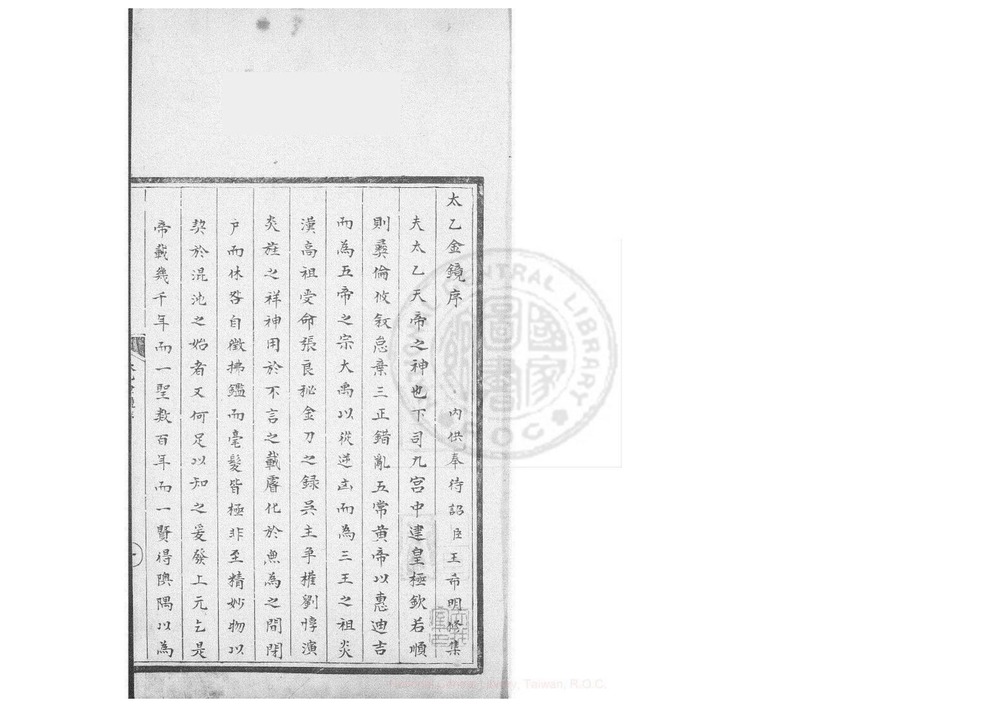 太乙金鏡序
內供奉待詔臣王希明修集
夫太乙天帝之神也下司九宮中建皇極欽若順
則彞倫攸敘怠棄三正錯亂五常黃帝以惠迪吉
而為五帝之宗大禹以從逆凶而為三王之祖炎
漢高祖受命張良秘金刀之錄吳主爭權劉惇演
炎旌之祥神用於不言之載睿化於無為之間閉
戶而休咎自徵拂鑑而毫髮皆極非至精妙物以
契於混沌之始者又何足以知之爰發上元乞是
帝載幾千年而一聖數百年而一賢得隩隅以為
CENTRAL LIBRARY
R.O.C.
國家圖書館
Taiwan, R.O.C.